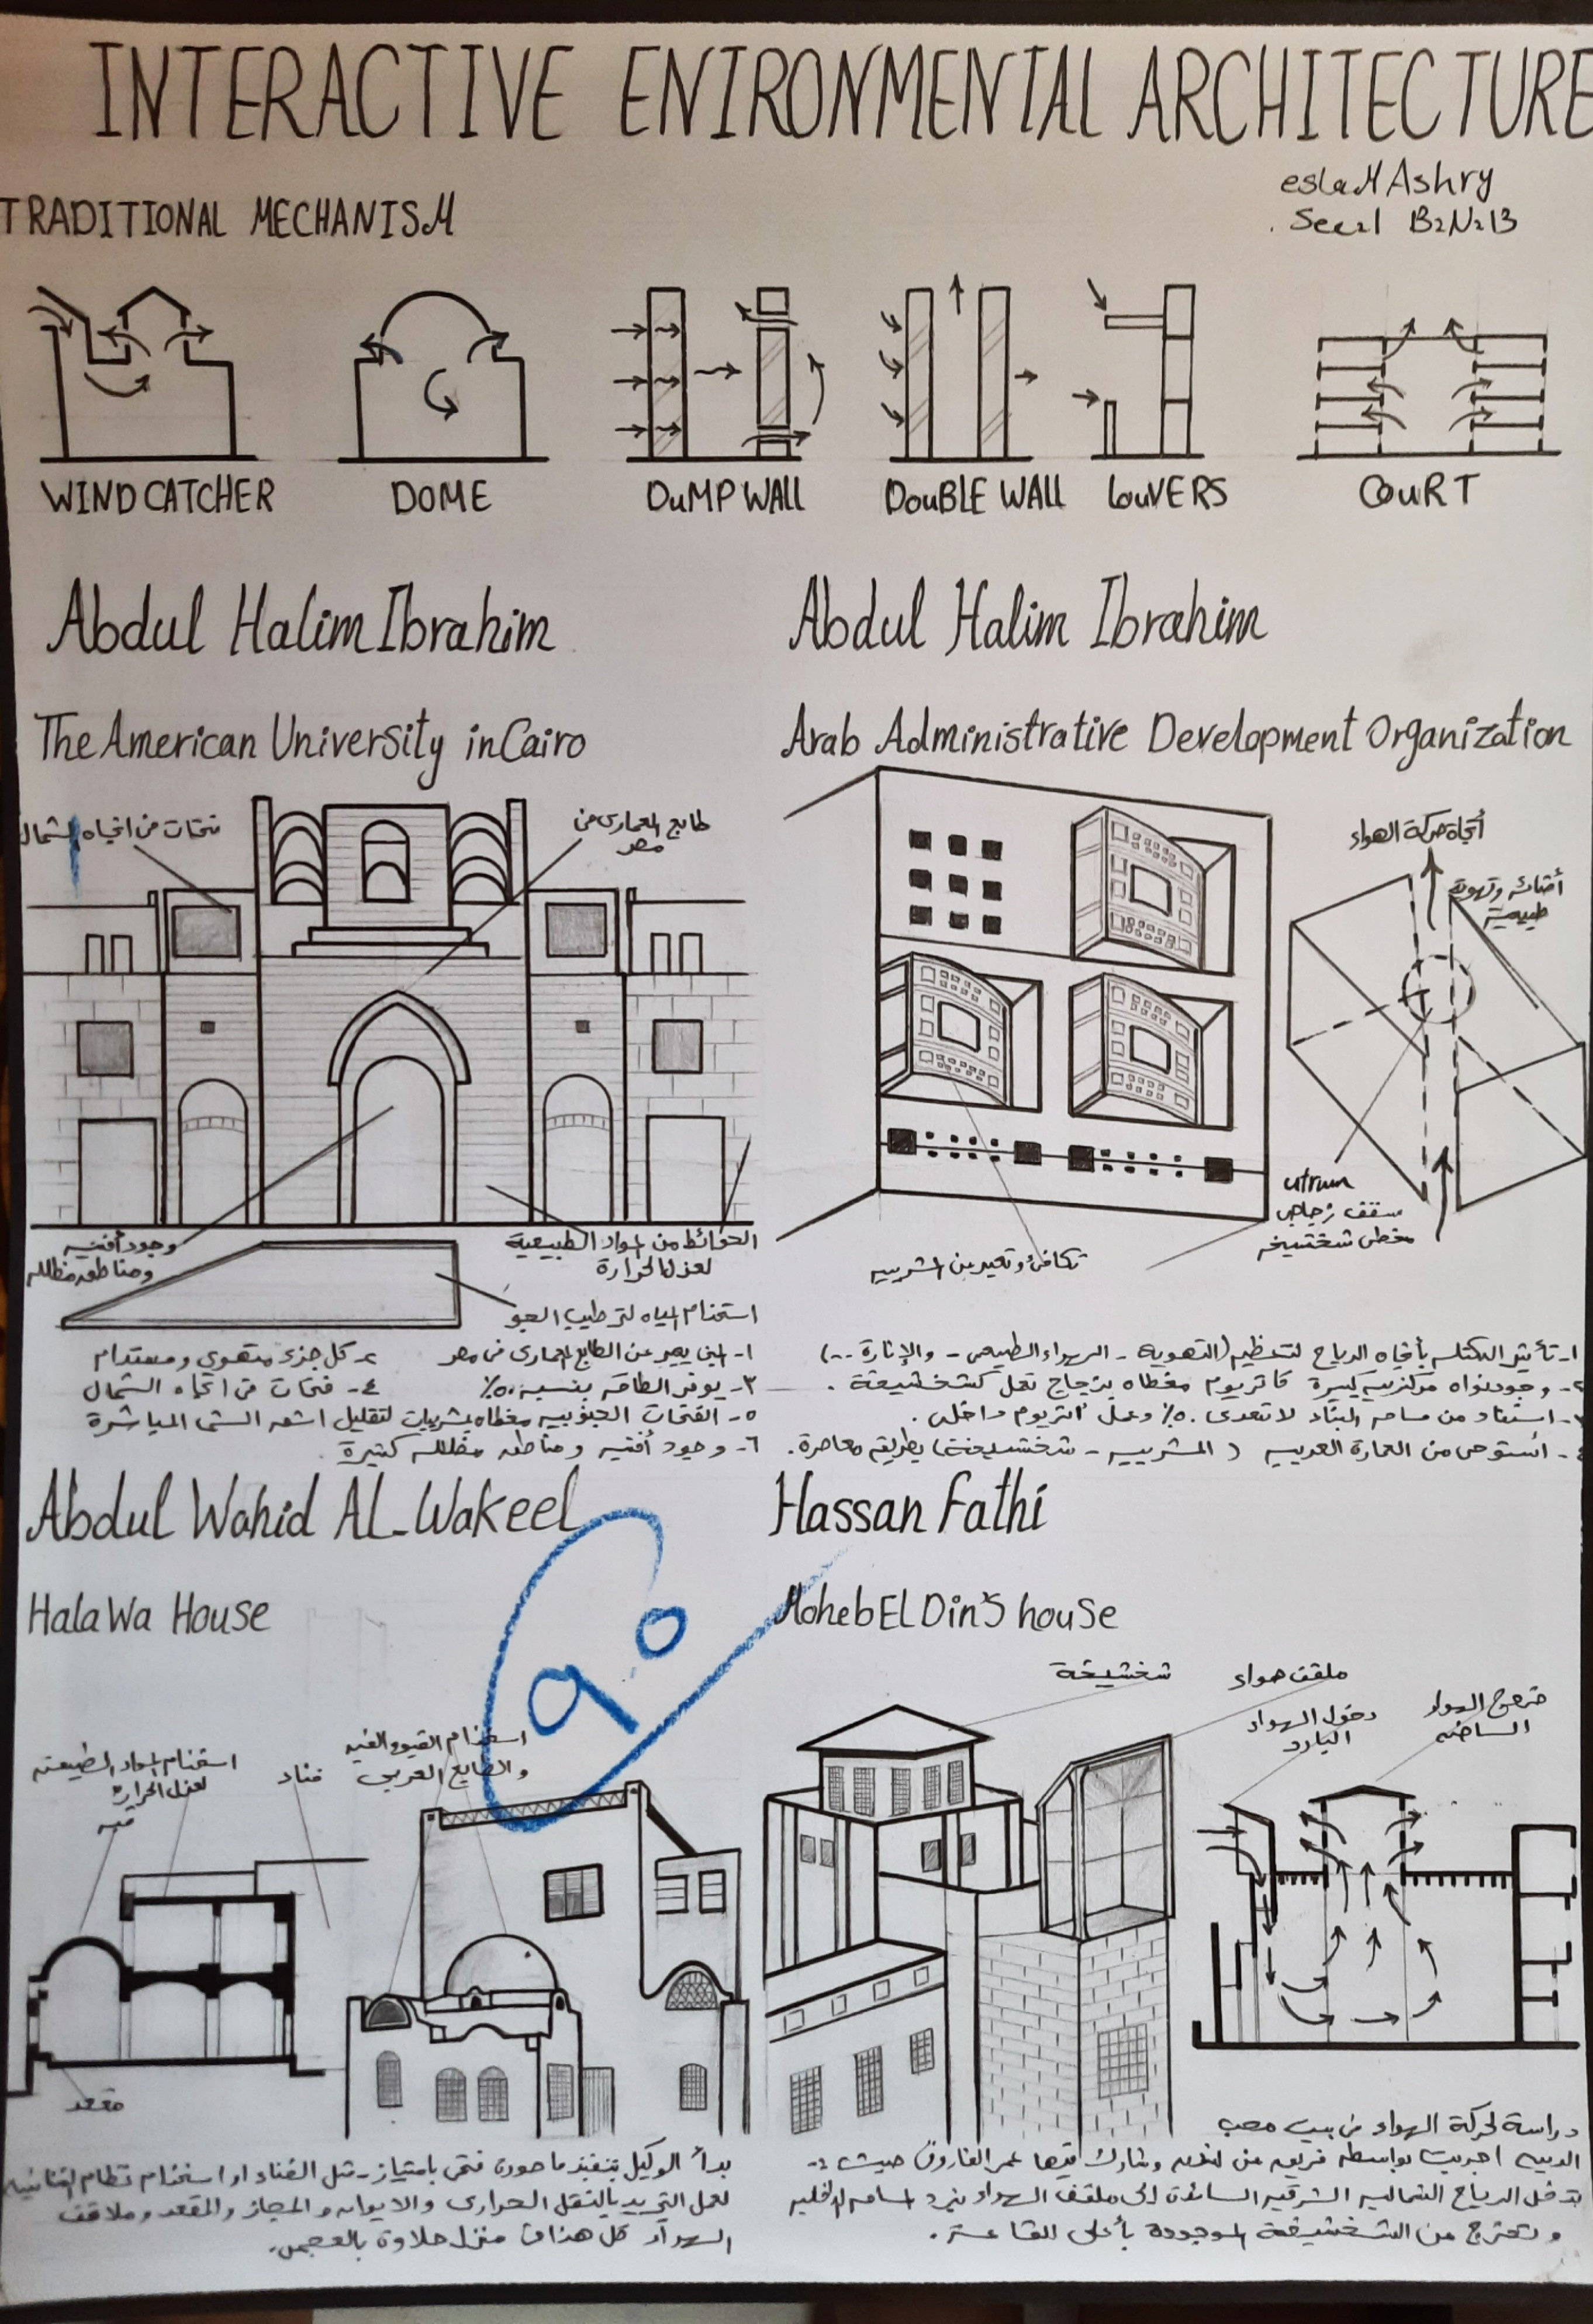 INTERACTIVE ENIRONMENTAL ARCHITECTURE
eslaM Ashry
Sec=1 B=N=13
TRADITIONAL MECHANISM
WIND CATCHER
DOME
DuMP WALL
DouBLE WALL
louVERS
COuRT
Abdul Halim Ibrahim
The American University in Cairo
فتحات من اتجاه الشمال
طابع المعمارى من
مصر
وجود أفنيه
ومناطق مظلله
الحوائط من المواد الطبيعية
لعزل الحرارة
استخدام المياه لترطيب الجو
١- المبنى يعبر عن الطابع المعمارى فى مصر
٢- كل جزء متهوي ومستدام
٣- يوفر الطاقه بنسبه ٥٠٪
٤- فتحات من اتجاه الشمال
٥- الفتحات الجنوبيه مغطاه بمشربيات لتقليل اشعه الشمس المباشرة
٦- وجود أفنيه ومناطق مظلله كثيرة
Abdul Halim Ibrahim
Arab Administrative Development Organization
أتجاة حركة الهواء
أضائه وتهوية
طبيعيه
utrum
سقف زجاجى
مغطى شخشيخه
تكافئ وتعبير عن المشربيه
١- تأثير الكتله بأتجاه الرياح لتنظيم (التهوية - الهواء الطبيعى - والإنارة --)
٢- وجود نواه مركزيه كبيرة كاتريوم مغطاه بزجاج تعمل كشخشيخة .
استفاد من مساحه البناء لا تتعدى ٥٠٪ وعمل اتريوم داخلى .
- استوحى من العمارة العربيه ( المشربيه - شخشيخة) بطريقه معاصرة.
Abdul Wahid AL-Wakeel
HalaWa House
استخدام المواد الطبيعيه
لعزل الحرارة
قبه
فناء
استخدام القبو والقبه
والطابع العربي
مقعد
9.0
بدأ الوكيل بتنفيذ ما صوره فتحى بامتياز - مثل الفناء او استخدام نظام
لعمل التبريد بالنقل الحرارى والايوان والمجاز والمقعد وملاقف
الهواء كل هذا فى منزل حلاوة بالعجمى.
Hassan Fathi
Moheb EL Din'S house
شخشيخة
ملقف هواء
دخول الهواء
البارد
خروج الهواء
الساخن
دراسة لحركة الهواء فى بيت محب
الدين اجريت بواسطه فريق من لندن وشارك فيها عمر الفاروق حيث :-
تدخل الرياح الشماليه الشرقيه السائدة الى ملقف الهواء
وتخرج من الشخشيخة الموجودة بأعلى القاعه .